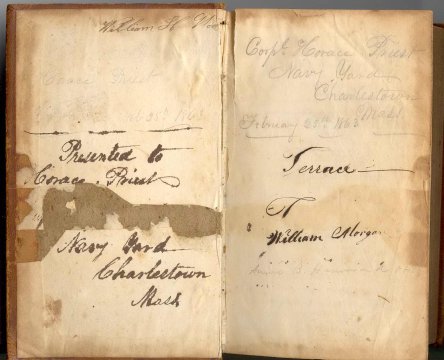 William H
Horace Priest
Feb 25th 1863
Presented to
Horace Priest
Navy Yard
Charlestown
Mass
Corpl. Horace Priest
Navy Yard
Charlestown
Mass
February 25th 1863
Terrace
William Morgan